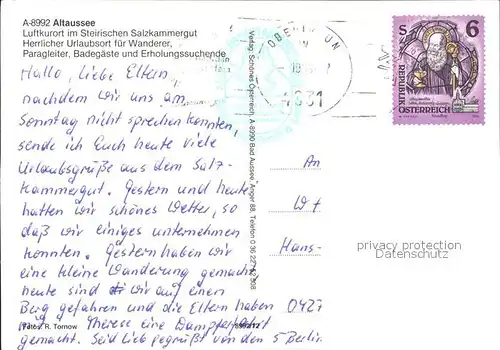 A-8992 Altaussee
Luftkurort im Steirischen Salzkammergut
Herrlicher Urlaubsort für Wanderer,
Paragleiter, Badegäste und Erholungssuchende
Hallo, liebe Eltern
nachdem wir uns am
Sonntag nicht sprechen konnten,
sende ich Euch heute viele
Urlaubsgrüße aus dem Salz-
kammergut. Gestern und heute
hatten wir schönes Wetter, so
daß wir einiges unternehmen
konnten. Gestern haben wir
eine kleine Wanderung gemacht,
heute sind wir auf einen
Berg gefahren und die Eltern haben
mit Therese eine Dampferfahrt
gemacht. Seid lieb gegrüßt von den 5 Berlin.
Foto: R. Tornow
Verlag Schönes Österreich, A-8290 Bad Aussee, Anger 88, Telefon 0 36 22
4831
S 6
REPUBLIK
ÖSTERREICH
An
Hans-
0427
privacy protection